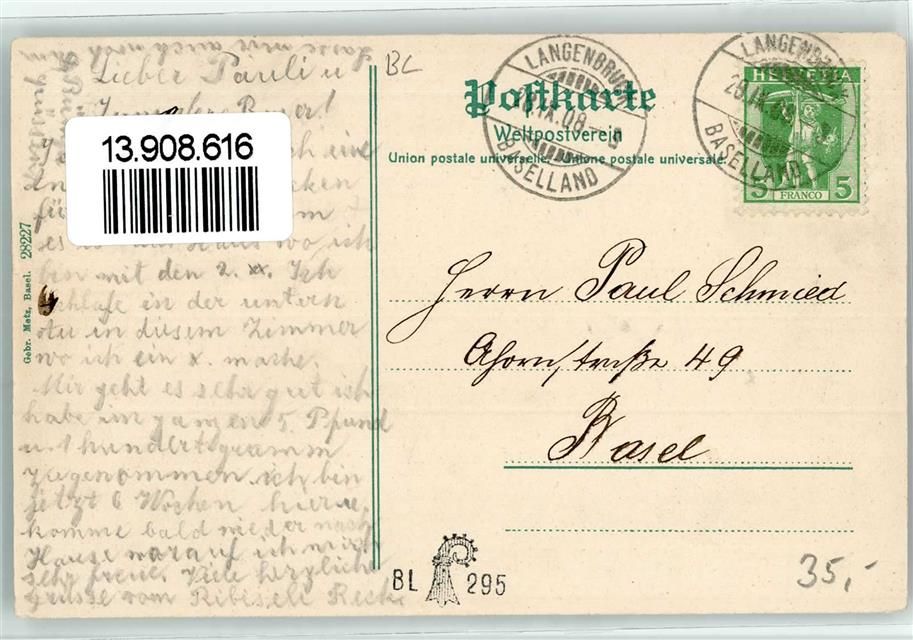 Lieber Pauli u
BL
Postkarte
Weltpostverein
Union postale universelle. Unione postale universale.
LANGENBRUCK
IX.08
BASELLAND
LANGENBRUCK
BASELLAND
HELVETIA
5 FRANCO 5
13.908.616
ich eine
für
es wo ich
bin mit den 2. xx. Ich
schlafe in der untern
in diesem Zimmer
wo ich ein x. mache.
Mir geht es sehr gut ich
habe im ganzen 5. Pfund
hundert gramm
zugenommen ich bin
jetzt 6 Wochen hier u.
komme bald wieder nach
Hause worauf ich mich
sehr freue. Viele herzliche
Grüsse vom
Gebr. Metz, Basel. 28227
Herrn Paul Schmied
Ahornstraße 49
Basel
BL 295
35,-